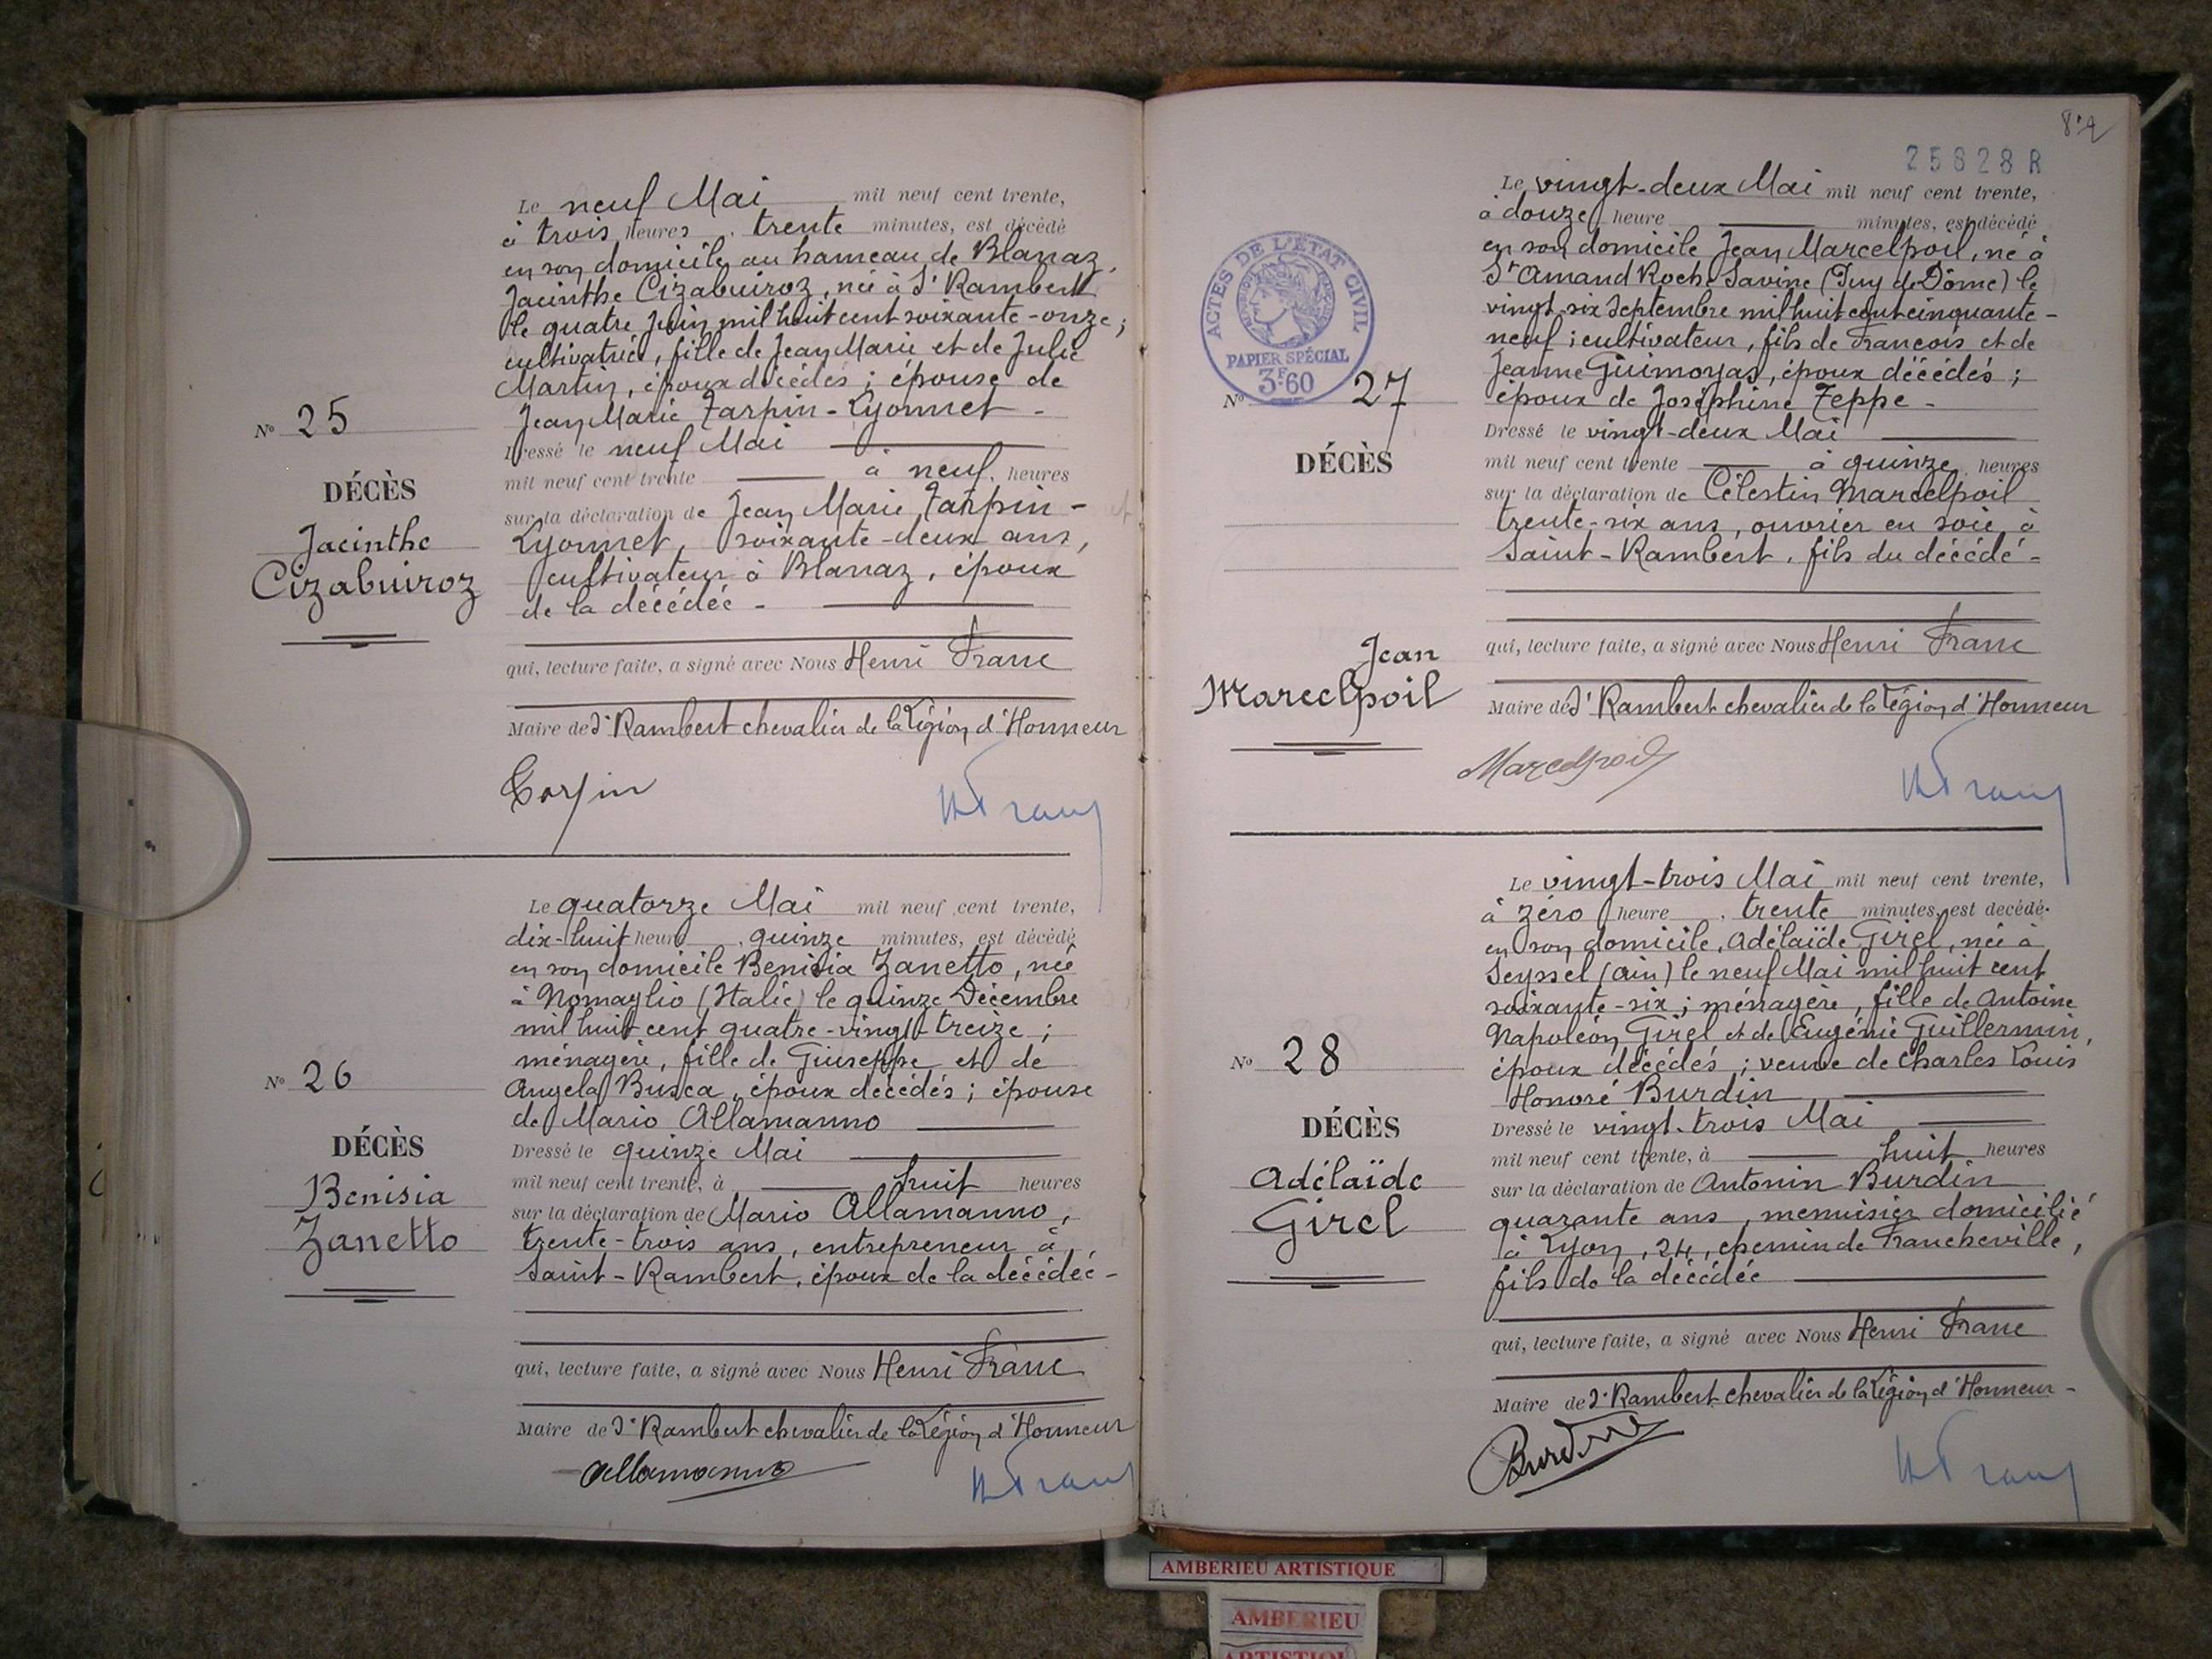 Le neuf Mai mil neuf cent trente,
à trois heures trente minutes, est décédé
en son domicile au hameau de Blanaz,
Jacinthe Cizabuiroz, née à St Rambert
le quatre Juin mil huit cent soixante-onze;
cultivatrice, fille de Jean Marie et de Julie
Martin, époux décédés; épouse de
Jean Marie Tarpin-Lyonnet -
Dressé le neuf Mai
mil neuf cent trente à neuf heures
sur la déclaration de Jean Marie Tarpin-
Lyonnet, soixante-deux ans,
cultivateur à Blanaz, époux
de la décédée -
qui, lecture faite, a signé avec Nous Henri Franc
Maire de St Rambert chevalier de la Légion d'Honneur
Nº 25
DÉCÈS
Jacinthe
Cizabuiroz
Tarpin
H Franc
Le quatorze Mai mil neuf cent trente,
dix-huit heure quinze minutes, est décédé
en son domicile Benisia Zanetto, née
à Nomaglio (Italie) le quinze Décembre
mil huit cent quatre-vingt treize;
ménagère, fille de Giuseppe et de
Angela Busca, époux décédés; épouse
de Mario Allamanno
Dressé le quinze Mai
mil neuf cent trente, à huit heures
sur la déclaration de Mario Allamanno,
trente-trois ans, entrepreneur à
Saint-Rambert, époux de la décédée -
qui, lecture faite, a signé avec Nous Henri Franc
Maire de St Rambert chevalier de la Légion d'Honneur
Nº 26
DÉCÈS
Benisia
Zanetto
Allamanno
H Franc
25628 R
Le vingt-deux Mai mil neuf cent trente,
à douze heure minutes, est décédé
en son domicile Jean Marcelpoil, né à
St Amand Roche Savine (Puy de Dôme) le
vingt-six Septembre mil huit cent cinquante-
neuf; cultivateur, fils de François et de
Jeanne Guimoyas, époux décédés;
époux de Joséphine Teppe -
Dressé le vingt-deux Mai
mil neuf cent trente à quinze heures
sur la déclaration de Célestin Marcelpoil
trente-six ans, ouvrier en soie, à
Saint-Rambert, fils du décédé -
qui, lecture faite, a signé avec Nous Henri Franc
Maire de St Rambert chevalier de la Légion d'Honneur
ACTES DE L'ÉTAT CIVIL
PAPIER SPÉCIAL
3F60
Nº 27
DÉCÈS
Jean
Marcelpoil
Marcelpoil
H Franc
Le vingt-trois Mai mil neuf cent trente,
à zéro heure trente minutes, est décédé
en son domicile, Adélaïde Girel, née à
Seyssel (Ain) le neuf Mai mil huit cent
soixante-six; ménagère, fille de Antoine
Napoléon Girel et de Eugénie Guillermin,
époux décédés; veuve de Charles Louis
Honoré Burdin
Dressé le vingt-trois Mai
mil neuf cent trente, à huit heures
sur la déclaration de Antonin Burdin
quarante ans, menuisier domicilié
à Lyon, 24, chemin de Francheville,
fils de la décédée
qui, lecture faite, a signé avec Nous Henri Franc
Maire de St Rambert chevalier de la Légion d'Honneur -
Nº 28
DÉCÈS
Adélaïde
Girel
Burdin
H Franc
AMBERIEU ARTISTIQUE
AMBERIEU
ARTISTIQUE